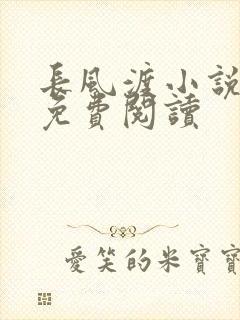 長風渡小說
免費閱讀
愛笑的米寶寶